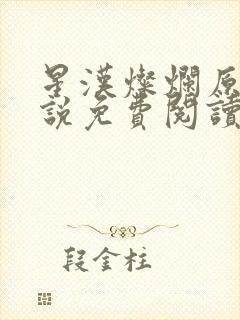 星漢燦爛原
說免費閱讀
段金柱